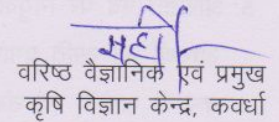 सही
वरिष्ठ वैज्ञानिक एवं प्रमुख
कृषि विज्ञान केन्द्र, कवर्धा